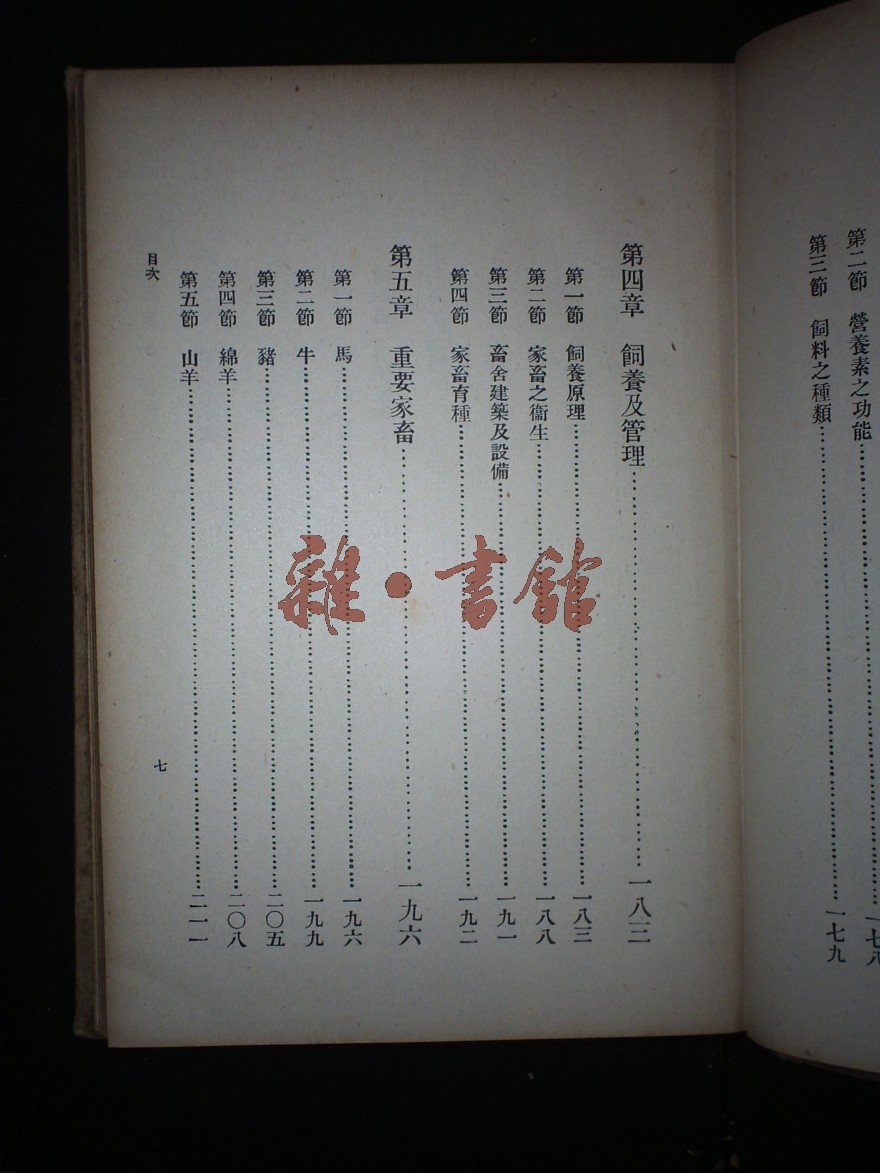 第二節　營養素之功能……一七八
第三節　飼料之種類……一七九
第四章　飼養及管理……一八三
第一節　飼養原理……一八三
第二節　家畜之衞生……一八八
第三節　畜舍建築及設備……一九一
第四節　家畜育種……一九二
第五章　重要家畜……一九六
第一節　馬……一九六
第二節　牛……一九九
第三節　豬……二〇五
第四節　綿羊……二〇八
第五節　山羊……二一一
目次
七
雜·書館